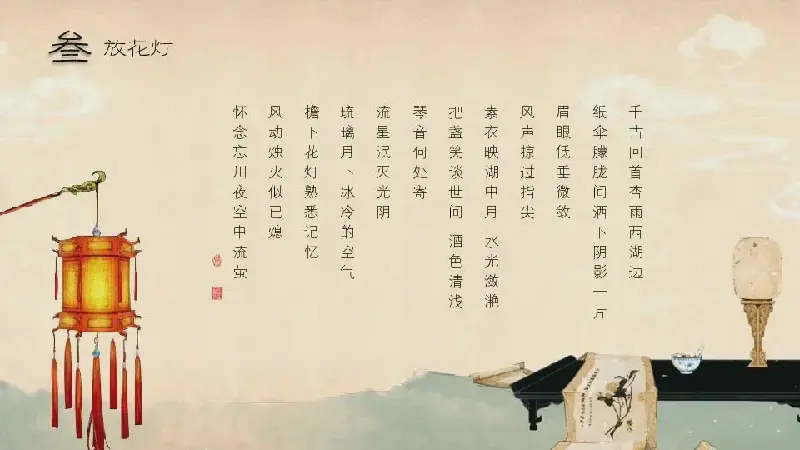 叁 放花灯
千古回首杏雨西湖边
纸伞朦胧间洒下阴影一片
眉眼低垂微敛
风声掠过指尖
素衣映湖中月 水光潋滟
把盏笑谈世间 酒色清浅
琴音何处寄
流星沉灭光阴
琉璃月下冰冷的空气
檐下花灯熟悉记忆
风动烛火似已熄
怀念忘川夜空中流萤